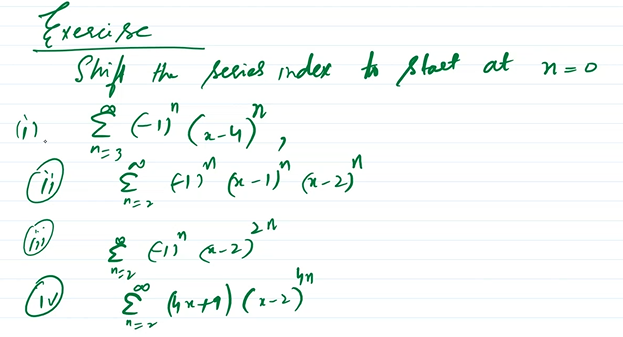 Exercise
Shift the series index to start at n=0
(i). ∑_{n=3}^{∞} (-1)^n (x-4)^n,
(ii) ∑_{n=2}^{∞} (-1)^n (x-1)^n (x-2)^n
(iii) ∑_{n=2}^{∞} (-1)^n (x-2)^{2n}
(iv) ∑_{n=2}^{∞} (4x+9) (x-2)^{4n}